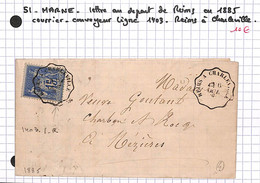 51 - MARNE - lettre au depart de Reims en 1885
courrier - convoyeur ligne 1903 - Reims à Charleville.
10 €
REIMS A CHARLEV
Madame
Veuve Goutant
Charbon et
à Mézières
1885